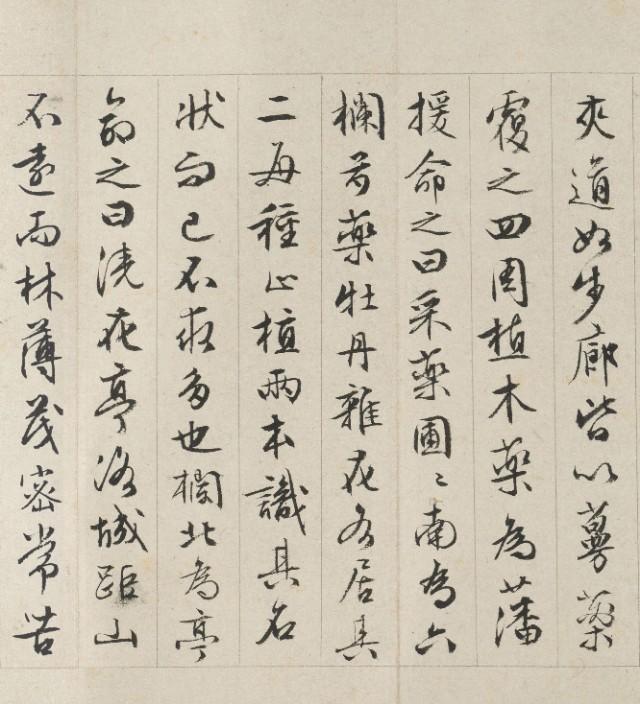 夾道如步廊皆以蔓藥
覆之四周植木藥為藩
援命之曰采藥圃〻南為六
欄芍藥牡丹雜花各居其
二每種止植兩本識其名
狀而已不求多也欄北為亭
命之曰澆花亭洛城距山
不遠而林薄茂密常苦